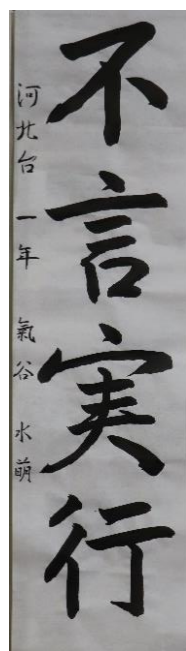 不言実行
河北台 一年 氣谷 水萌